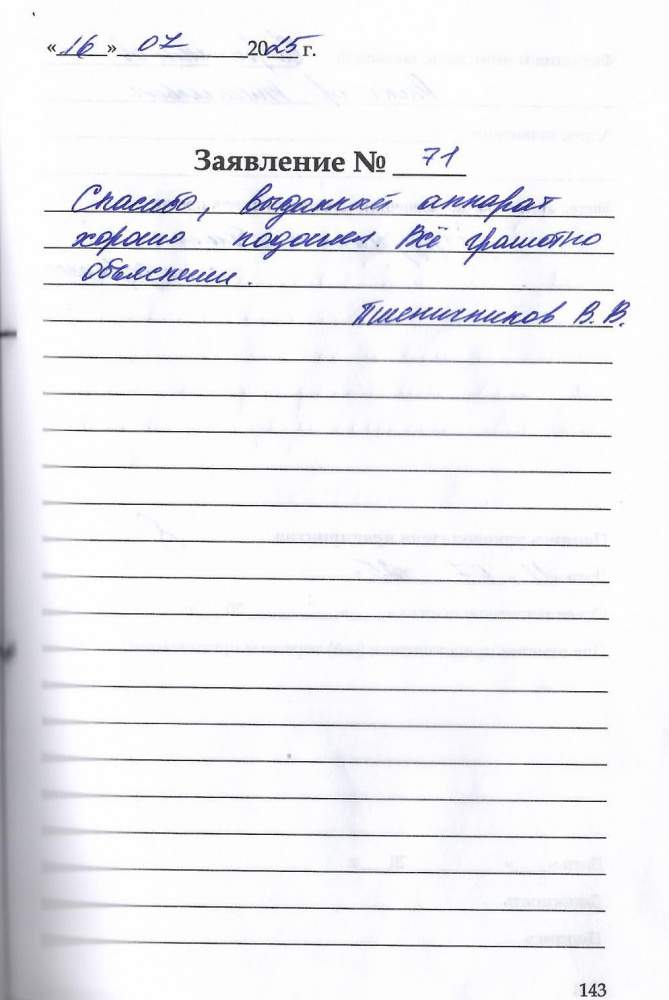 «16» 07 2025 г.
Заявление № 71
Спасибо, выданный аппарат
хорошо подошел Всё грамотно
объяснили.
Пшеничников В.В.
143